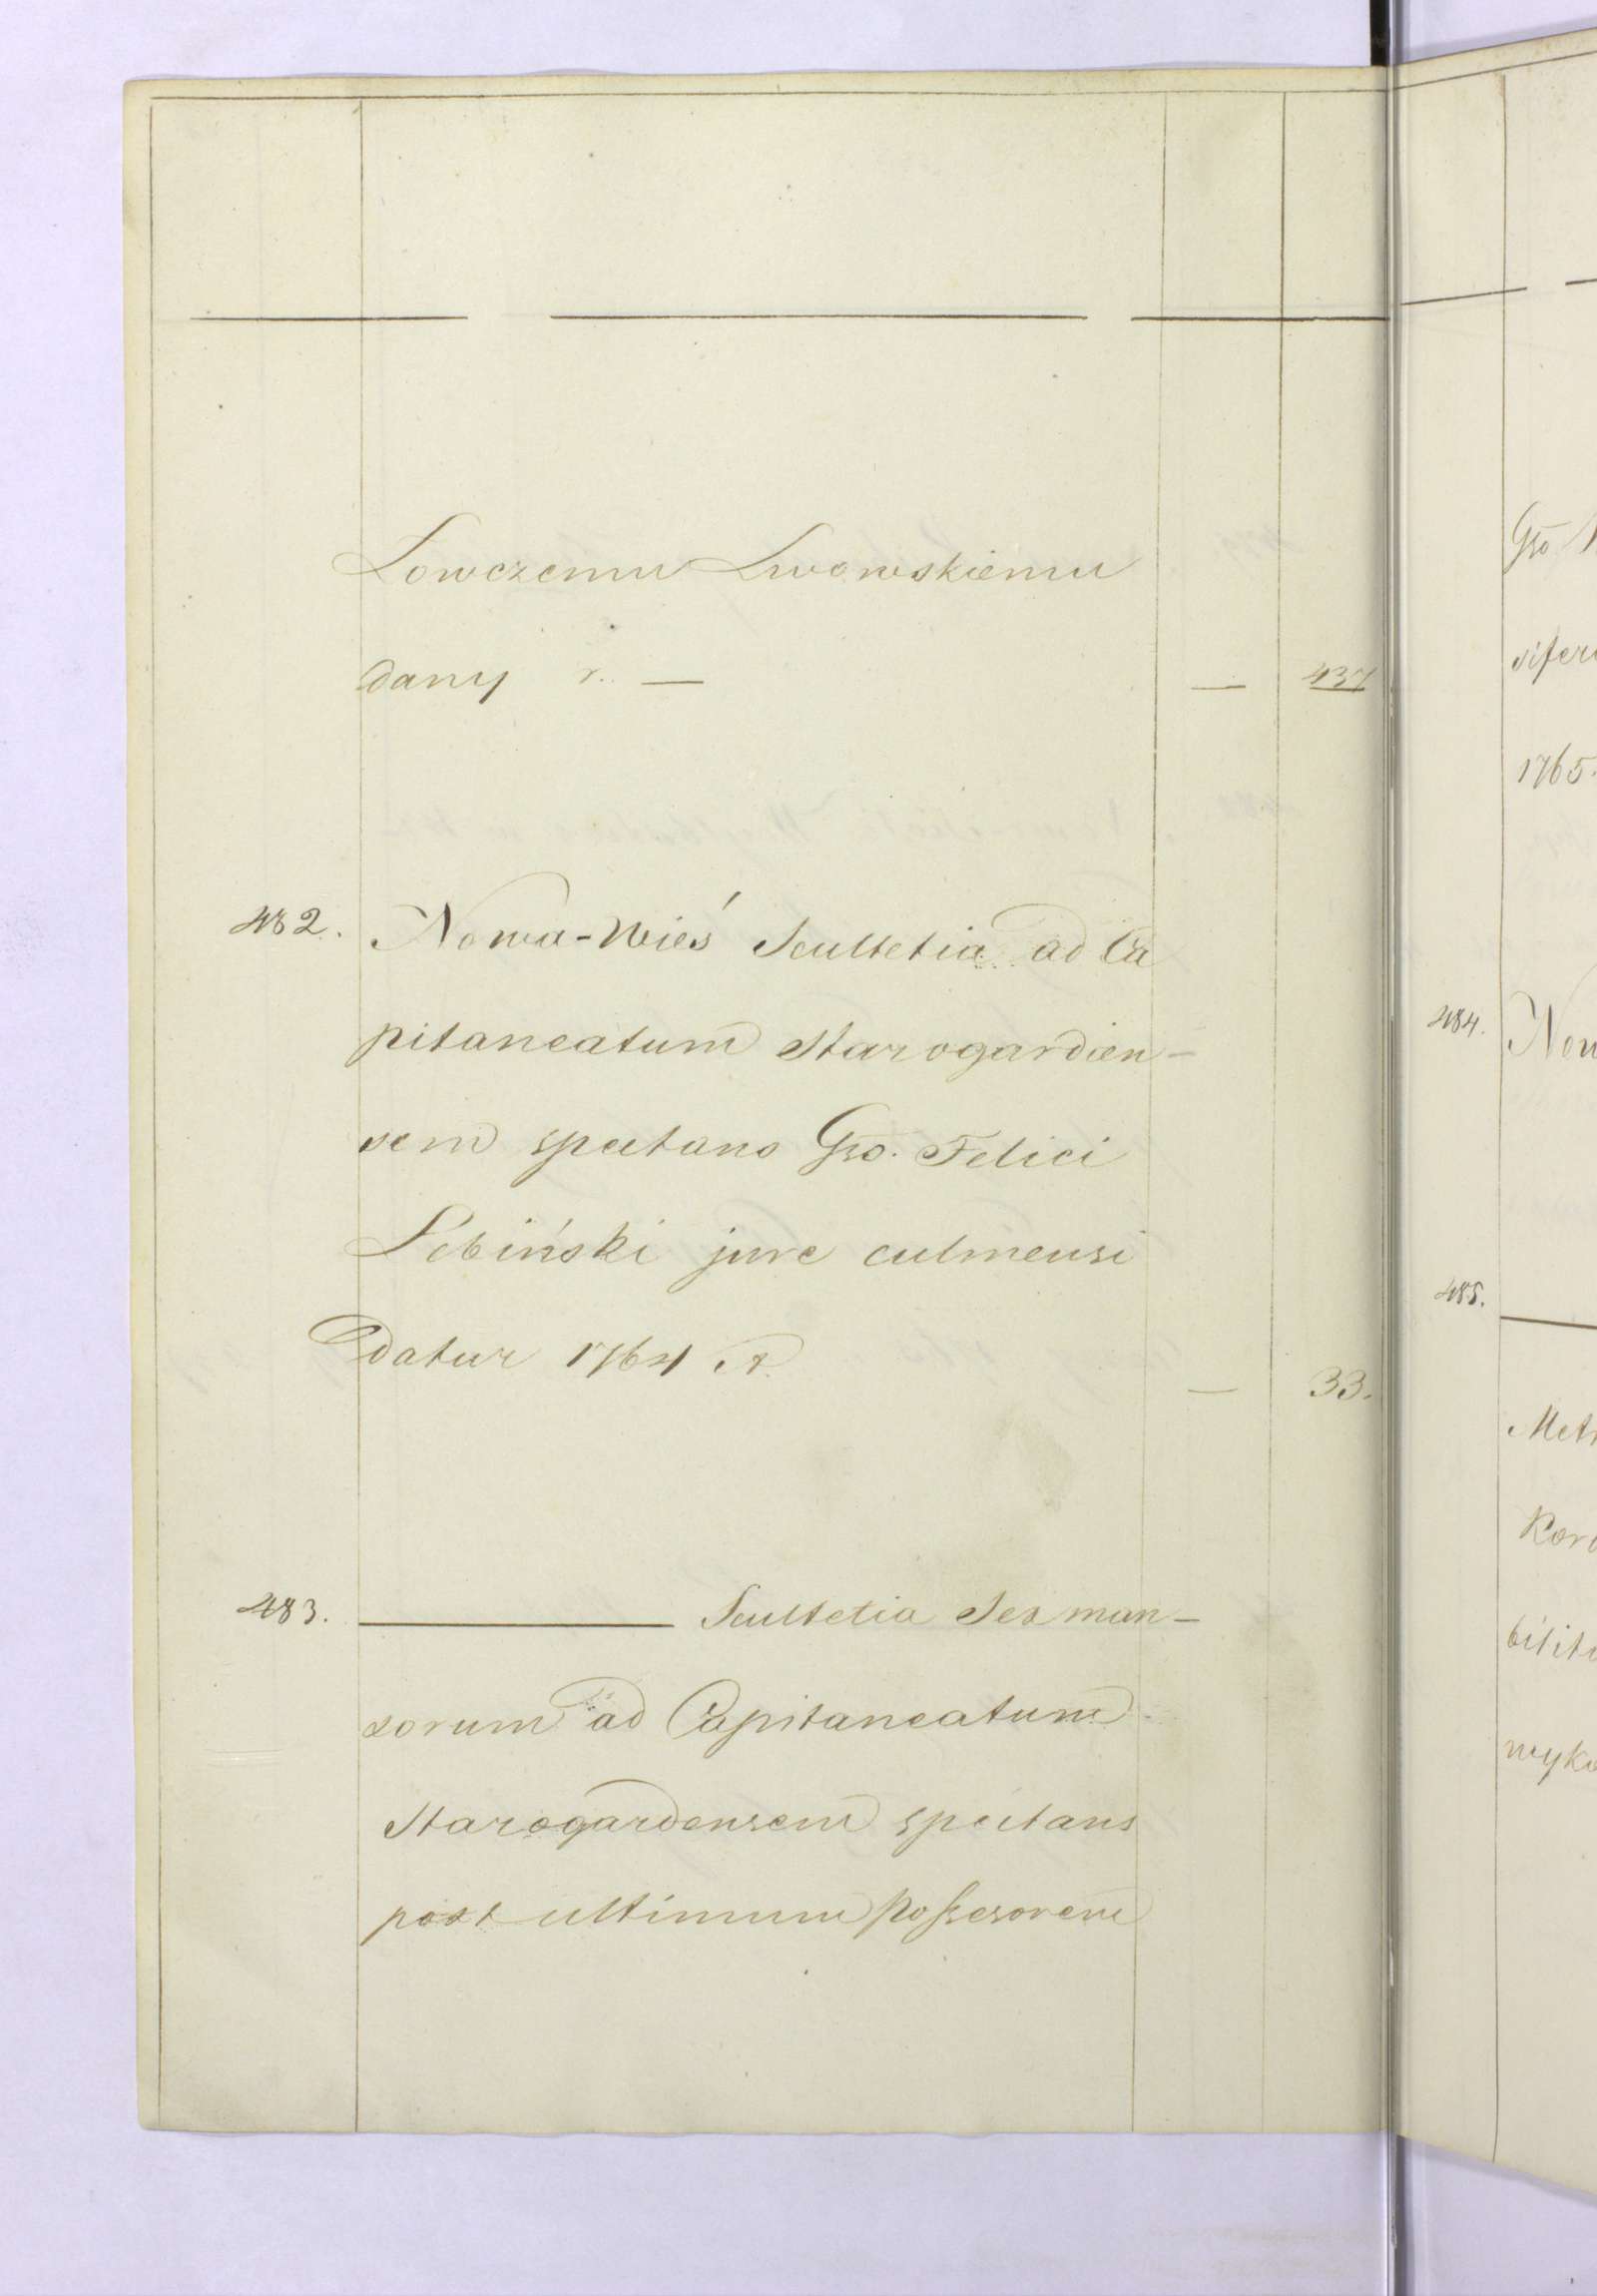 Lowczemu Lwowskiemu
dany r. — — 437
482. Nowa-Wieś Scultetia ad Ca
pitaneatum Starogardien-
sem spectans Gso. Felici
Lebiński jure culmensi
datur 1764 r. — 33.
483. ——— Scultetia Sex man-
sorum ad Capitaneatum
Starogardensem spectans
post ultimum possesorem
Gso
1765.
484. Now
485. —
Metr
Koro
bilit
wyko